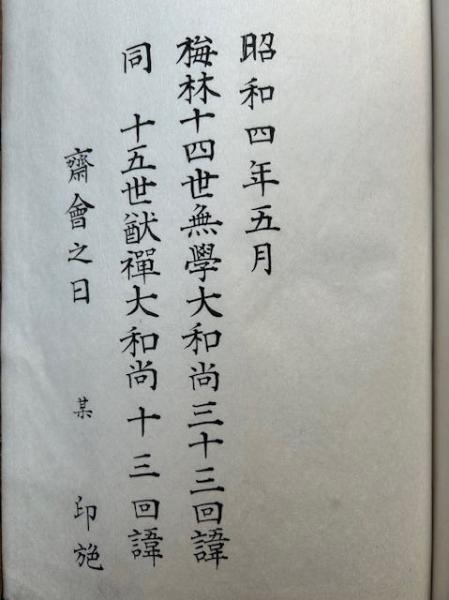 昭和四年五月
梅林十四世無學大和尚三十三回諱
同 十五世猷禪大和尚十三回諱
齋會之日 某 印施